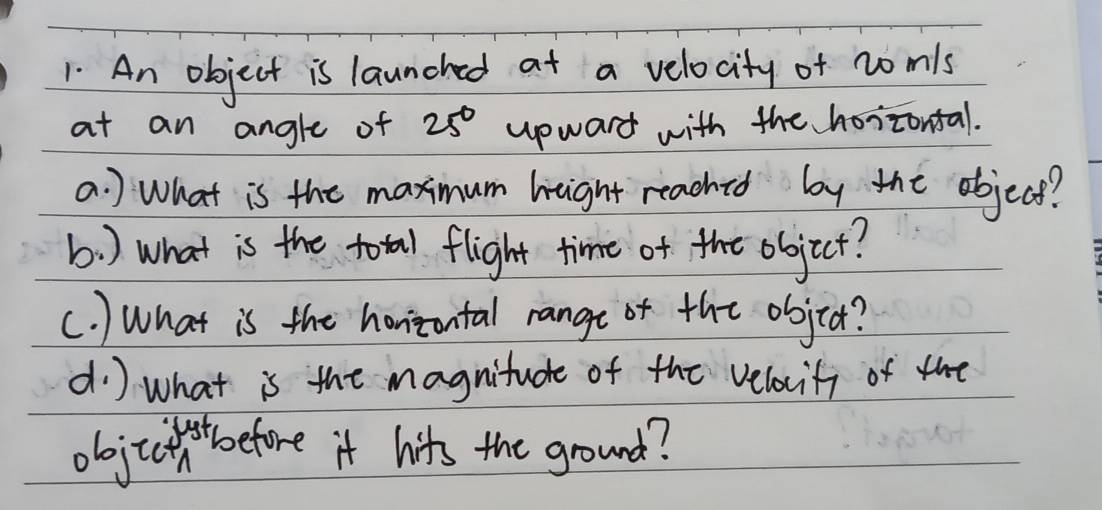 1. An object is launched at a velocity of 20 m/s
at an angle of 25° upward with the horizontal.
a.) What is the maximum height reached by the object?
b.) What is the total flight time of the object?
c.) What is the horizontal range of the object?
d.) What is the magnitude of the velocity of the
object just before it hits the ground?